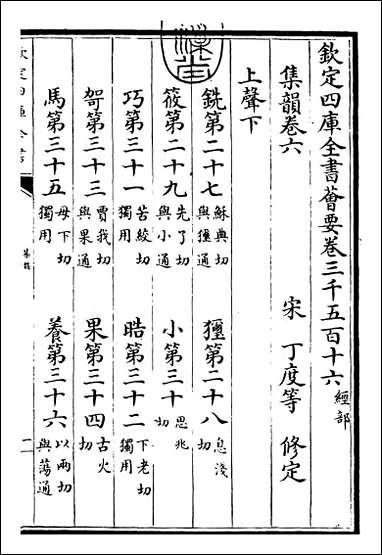 欽定四庫全書薈要卷三千五百十六 經部
集韻卷六
宋 丁度等 修定
上聲下
銑第二十七 蘇典切與獮通
獮第二十八 息淺切
筱第二十九 先了切與小通
小第三十 思兆切
巧第三十一 苦絞切獨用
晧第三十二 下老切獨用
哿第三十三 賈我切與果通
果第三十四 古火切
馬第三十五 母下切獨用
養第三十六 以兩切與蕩通
欽定四庫全書
集韻
一